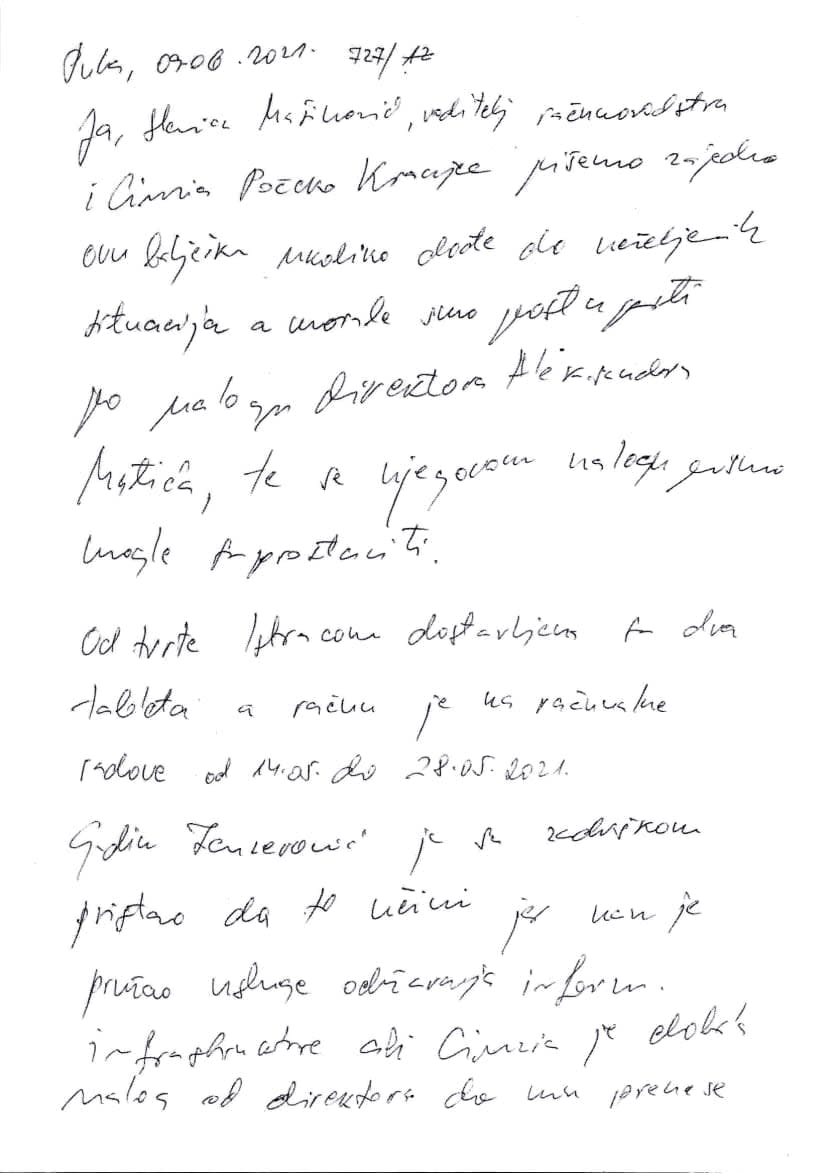 Pula, 09.06.2021. 727/12
Ja, Slavica Mažihović, voditelj računovodstva
i Cinzia Počeko Kranjce pišemo zajedno
ovu bilješku ukoliko dođe do neželjenih
situacija a morale smo postupiti
po nalogu direktora Aleksandra
Matića, te se njegovom nalogu nismo
mogle suprotstaviti.
Od tvrtke Istracom dostavljena su dva
tableta a račun je na računalne
radove od 14.05. do 28.05.2021.
Gdin Zenzerović je sa zadrškom
pristao da to učini jer nam je
pružao usluge održavanja inform.
infrastrukture ali Cinzia je dobila
nalog od direktora da mu prenese